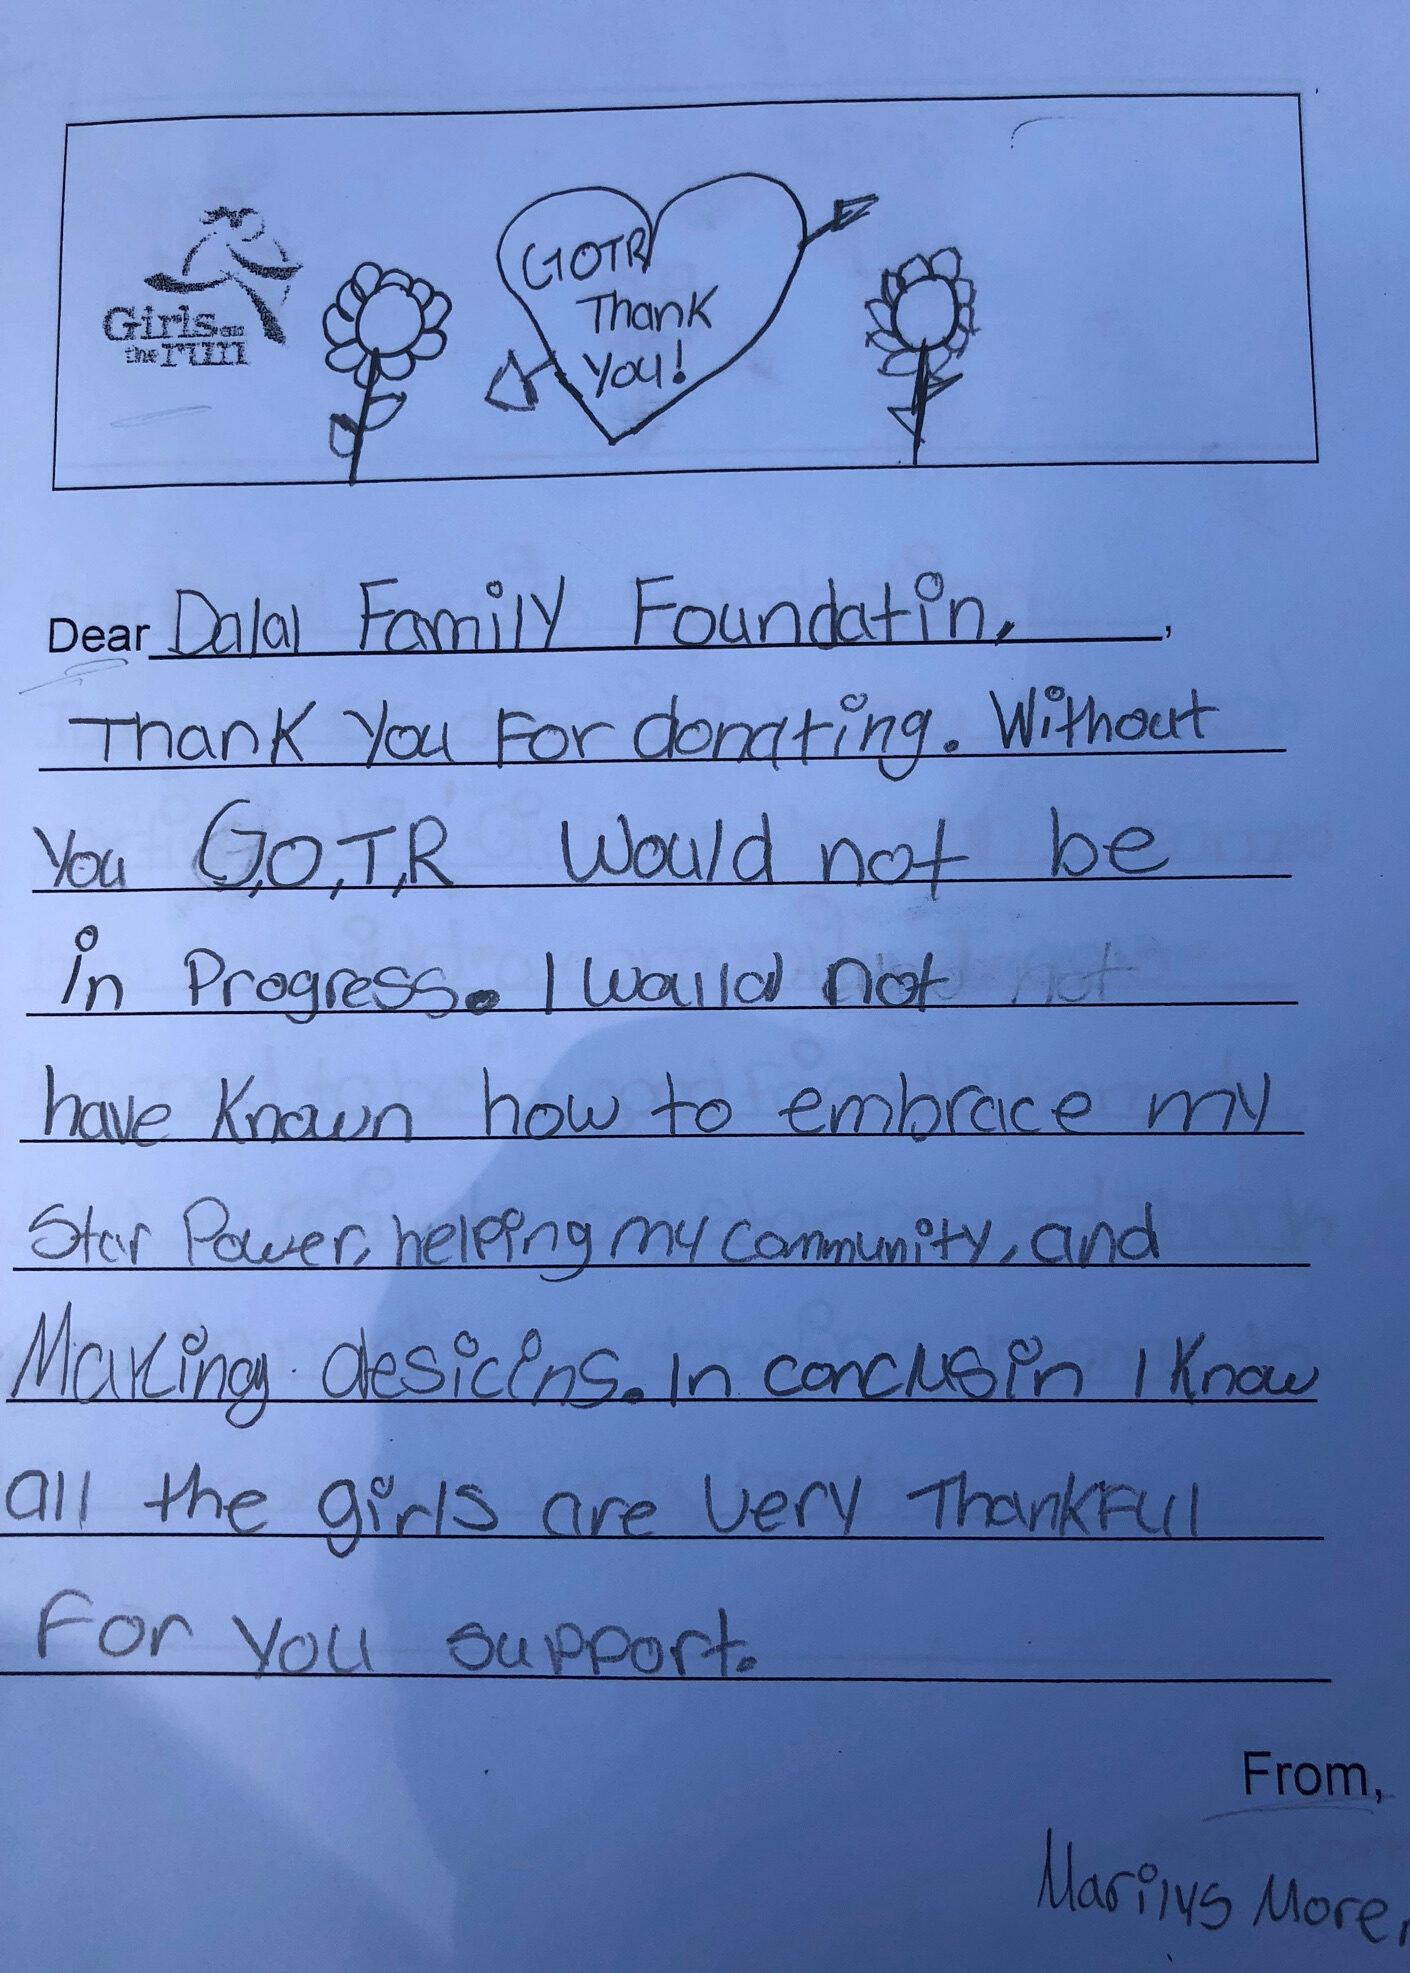 Girls on
the run
GOTR
Thank
You!
Dear Dalal Family Foundatin, ,
Thank You For donating. Without
You G,O,T,R Would not be
in Progress. I Would not
have Known how to embrace my
Star Power, helping my community, and
Making desicins. In conclusin I Know
all the girls are very Thankful
For you support.
From,
Marilys